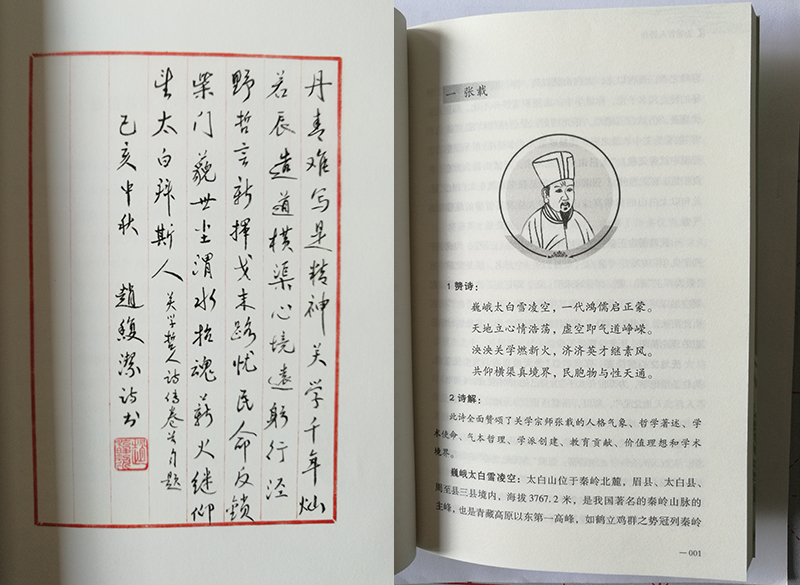 丹青难写是精神关学千年灿
若辰造道横渠心境远躬行泾
野哲言新挥戈末路忧民命反锁
柴门藐世尘渭水招魂薪火继仰
望太白拜斯人 关学哲人诗传卷首自题
己亥中秋 赵馥洁诗书
一 张载
1 赞诗：
巍峨太白雪凌空，一代鸿儒启正蒙。
天地立心情浩荡，虚空即气道峥嵘。
泱泱关学燃新火，济济英才继素风。
共仰横渠真境界，民胞物与性天通。
2 诗解：
此诗全面赞颂了关学宗师张载的人格气象、哲学著述、学
术使命、气本哲理、学派创建、教育贡献、价值理想和学术
境界。
巍峨太白雪凌空：太白山位于秦岭北麓，眉县、太白县、
周至县三县境内，海拔3767.2米，是我国著名的秦岭山脉的
主峰，也是青藏高原以东第一高峰，如鹤立鸡群之势冠列秦岭
—001